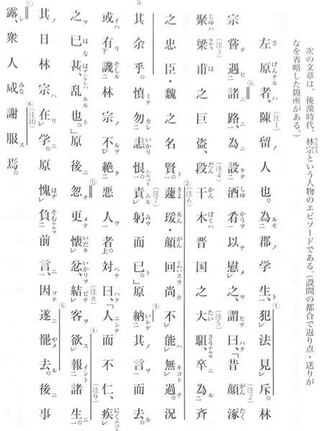 次の文章は、後漢時代、林宗という人物のエピソードである。(設問の都合で返り点・送りが
なを省略した箇所がある。)
左原者、陳留人也。為郡学生、犯法見斥。林
宗嘗遇諸路、為設酒肴以慰之、謂曰、「昔顔涿
聚梁甫之巨盗、段干木晋国之大駔、卒為斉
之忠臣・魏之名賢。蘧瑗・顔回尚不能無過。況
其余乎。慎勿恚恨、責躬而已。」原納其言而去。
或有譏林宗不絶悪人者。対曰、「人而不仁、疾
之已甚、乱也。」原後忽更懐忿、結客欲報諸生。
其日林宗在学、原愧負前言、因遂罷去。後事
露、衆人咸謝服焉。